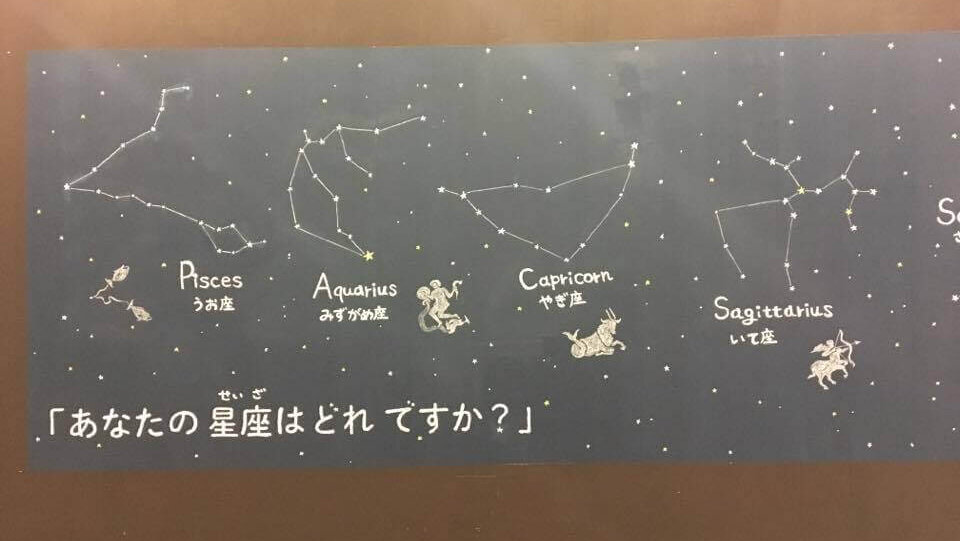 Pisces
うお座
Aquarius
みずがめ座
Capricorn
やぎ座
Sagittarius
いて座
S
せいざ
「あなたの星座はどれですか？」